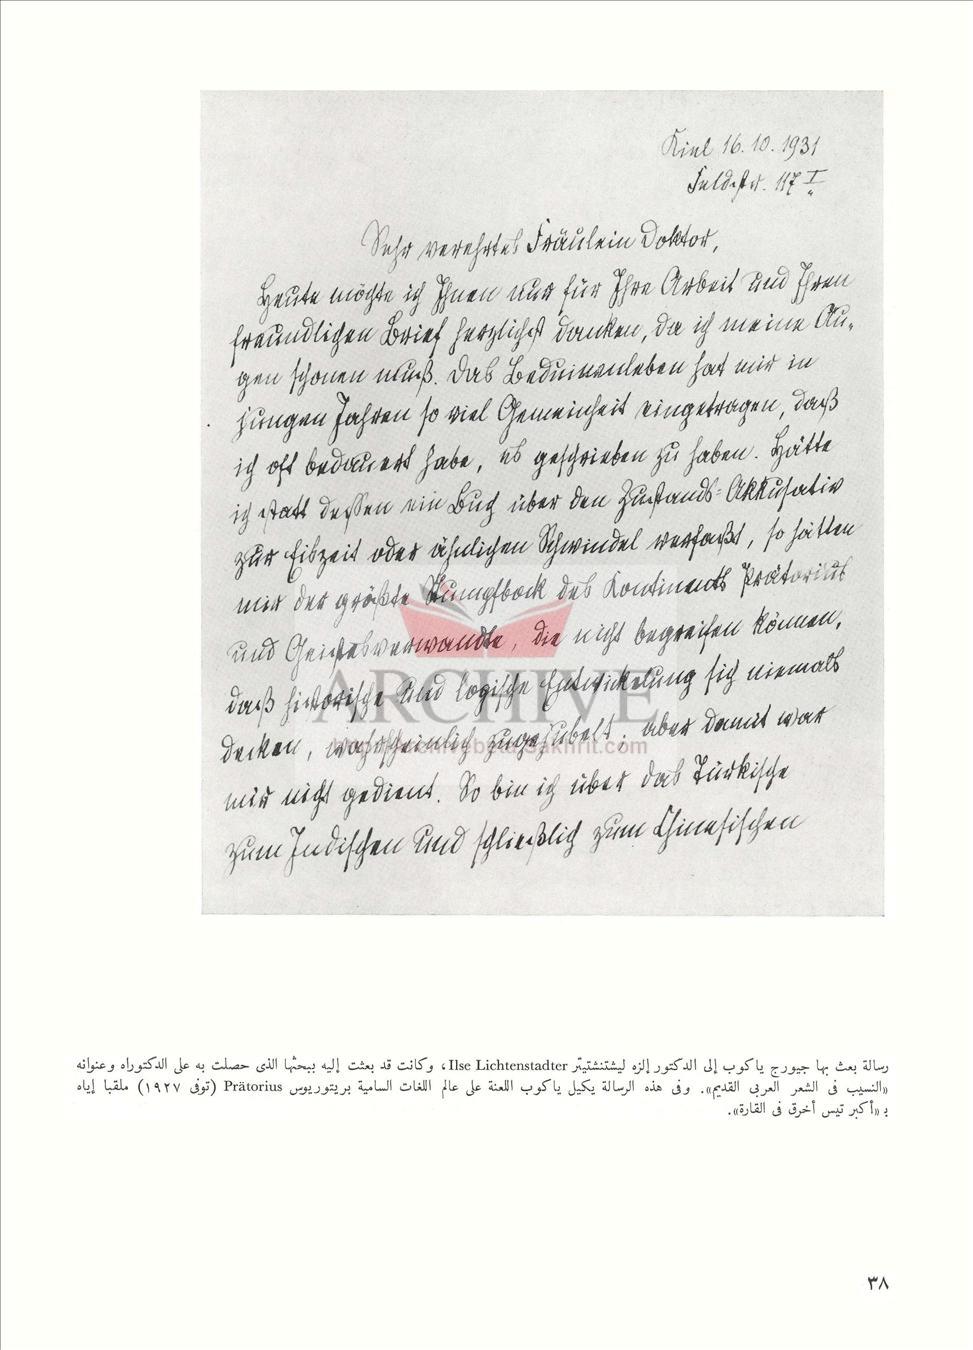 Kiel 16. 10. 1931
Feldstr. 117 I
Sehr verehrtes Fräulein Doktor,
Heute möchte ich Ihnen nur für Ihre Arbeit und Ihren
freundlichen Brief herzlichst danken, da ich meine Au-
gen schonen muß. Das Beduinenleben hat mir in
jungen Jahren so viel Gemeinheit eingetragen, daß
ich oft bedauert habe, es geschrieben zu haben. Hätte
ich statt dessen ein Buch über den Zustands-Akkusativ
zur Eiszeit oder ähnlichen Schwindel verfaßt, so hätten
mir der größte Stumpfbock des Kontinents Prätorius
und Geistesverwandte, die nicht begreifen können,
daß historische und logische Entwickelung sich niemals
decken, wahrscheinlich zugejubelt; aber damit war
mir nicht gedient. So bin ich über das Türkische
zum Indischen und schließlich zum Chinesischen
ARCHIVE
http://archivebeta.Sakhrit.com
رسالة بعث بها جيورج ياكوب إلى الدكتور إلزه ليشتنشتيتّر Ilse Lichtenstadter، وكانت قد بعثت إليه ببحثها الذى حصلت به على الدكتوراه وعنوانه
«النسيب فى الشعر العربى القديم». وفى هذه الرسالة يكيل ياكوب اللعنة على عالم اللغات السامية بريتوريوس Prätorius (توفى ١٩٢٧) ملقبا إياه
بـ «أكبر تيس أخرق فى القارة».
٣٨